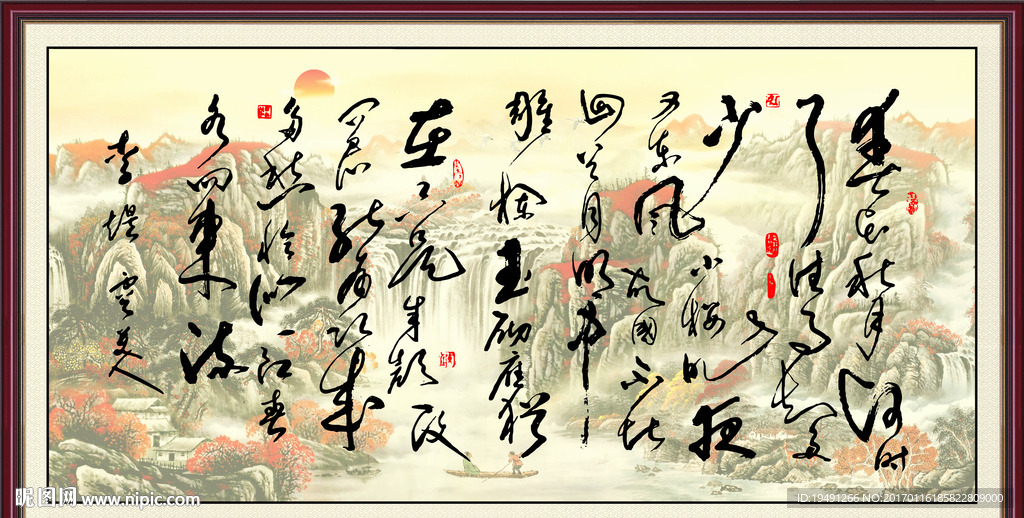 春花秋月何时
了往事知多
少小楼昨夜
又东風故國不堪
回首月明中
雕栏玉砌应犹
在只是朱颜改
问君能有幾
多愁恰似一江春
水向東流
李煜虞美人
昵图网 www.nipic.com
ID:19491266 NO:20170116185822809000